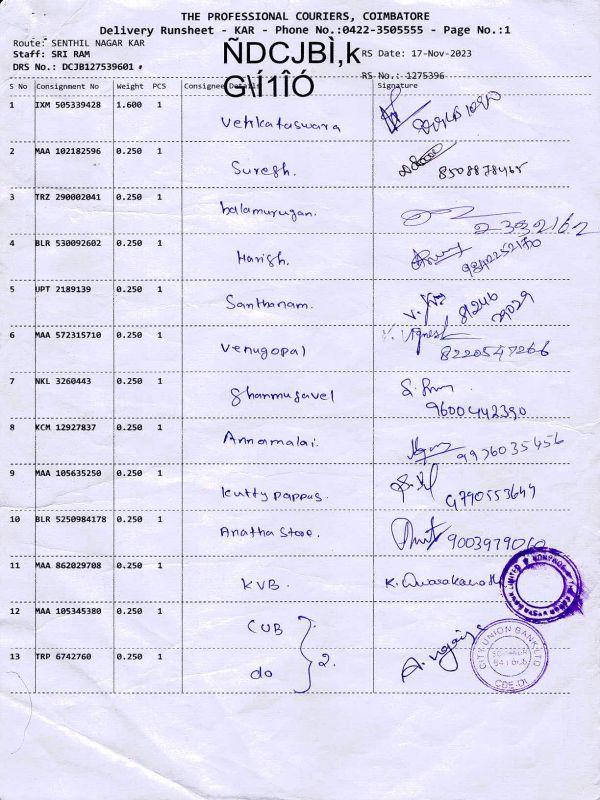 THE PROFESSIONAL COURIERS, COIMBATORE
Delivery Runsheet - KAR - Phone No.:0422-3505555 - Page No.:1
Route: SENTHIL NAGAR KAR
Staff: SRI RAM
ÑDCJBÌ,k RS Date: 17-Nov-2023
DRS No.: DCJB127539601
G\Í1ÎÓ RS No.: 1275396
S No Consignment No Weight PCS Consignee Details Signature
1 IXM 505339428 1.600 1 Venkataswara
2 MAA 102182596 0.250 1 Suresh. 8508878465
3 TRZ 290002041 0.250 1 balamurugan. 2332162
4 BLR 530092602 0.250 1 Harish. 9842252170
5 UPT 2189139 0.250 1 Santhanam. 81246
29029
6 MAA 572315710 0.250 1 Venugopal V. Vignesh 8220547266
7 NKL 3260443 0.250 1 Shanmugavel
9600442390
8 KCM 12927837 0.250 1 Annamalai. 9976035456
9 MAA 105635250 0.250 1 Kuttypappus. 9790553649
10 BLR 5250984178 0.250 1 Anatha Store. 9003979060
11 MAA 862029708 0.250 1 KVB. K. Dwarakanath
12 MAA 105345380 0.250 1 CUB
2.
13 TRP 6742760 0.250 1 do
CITY UNION BANK LTD